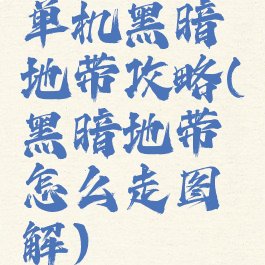 单机黑暗
地带攻略(
黑暗地带
怎么走图
解)